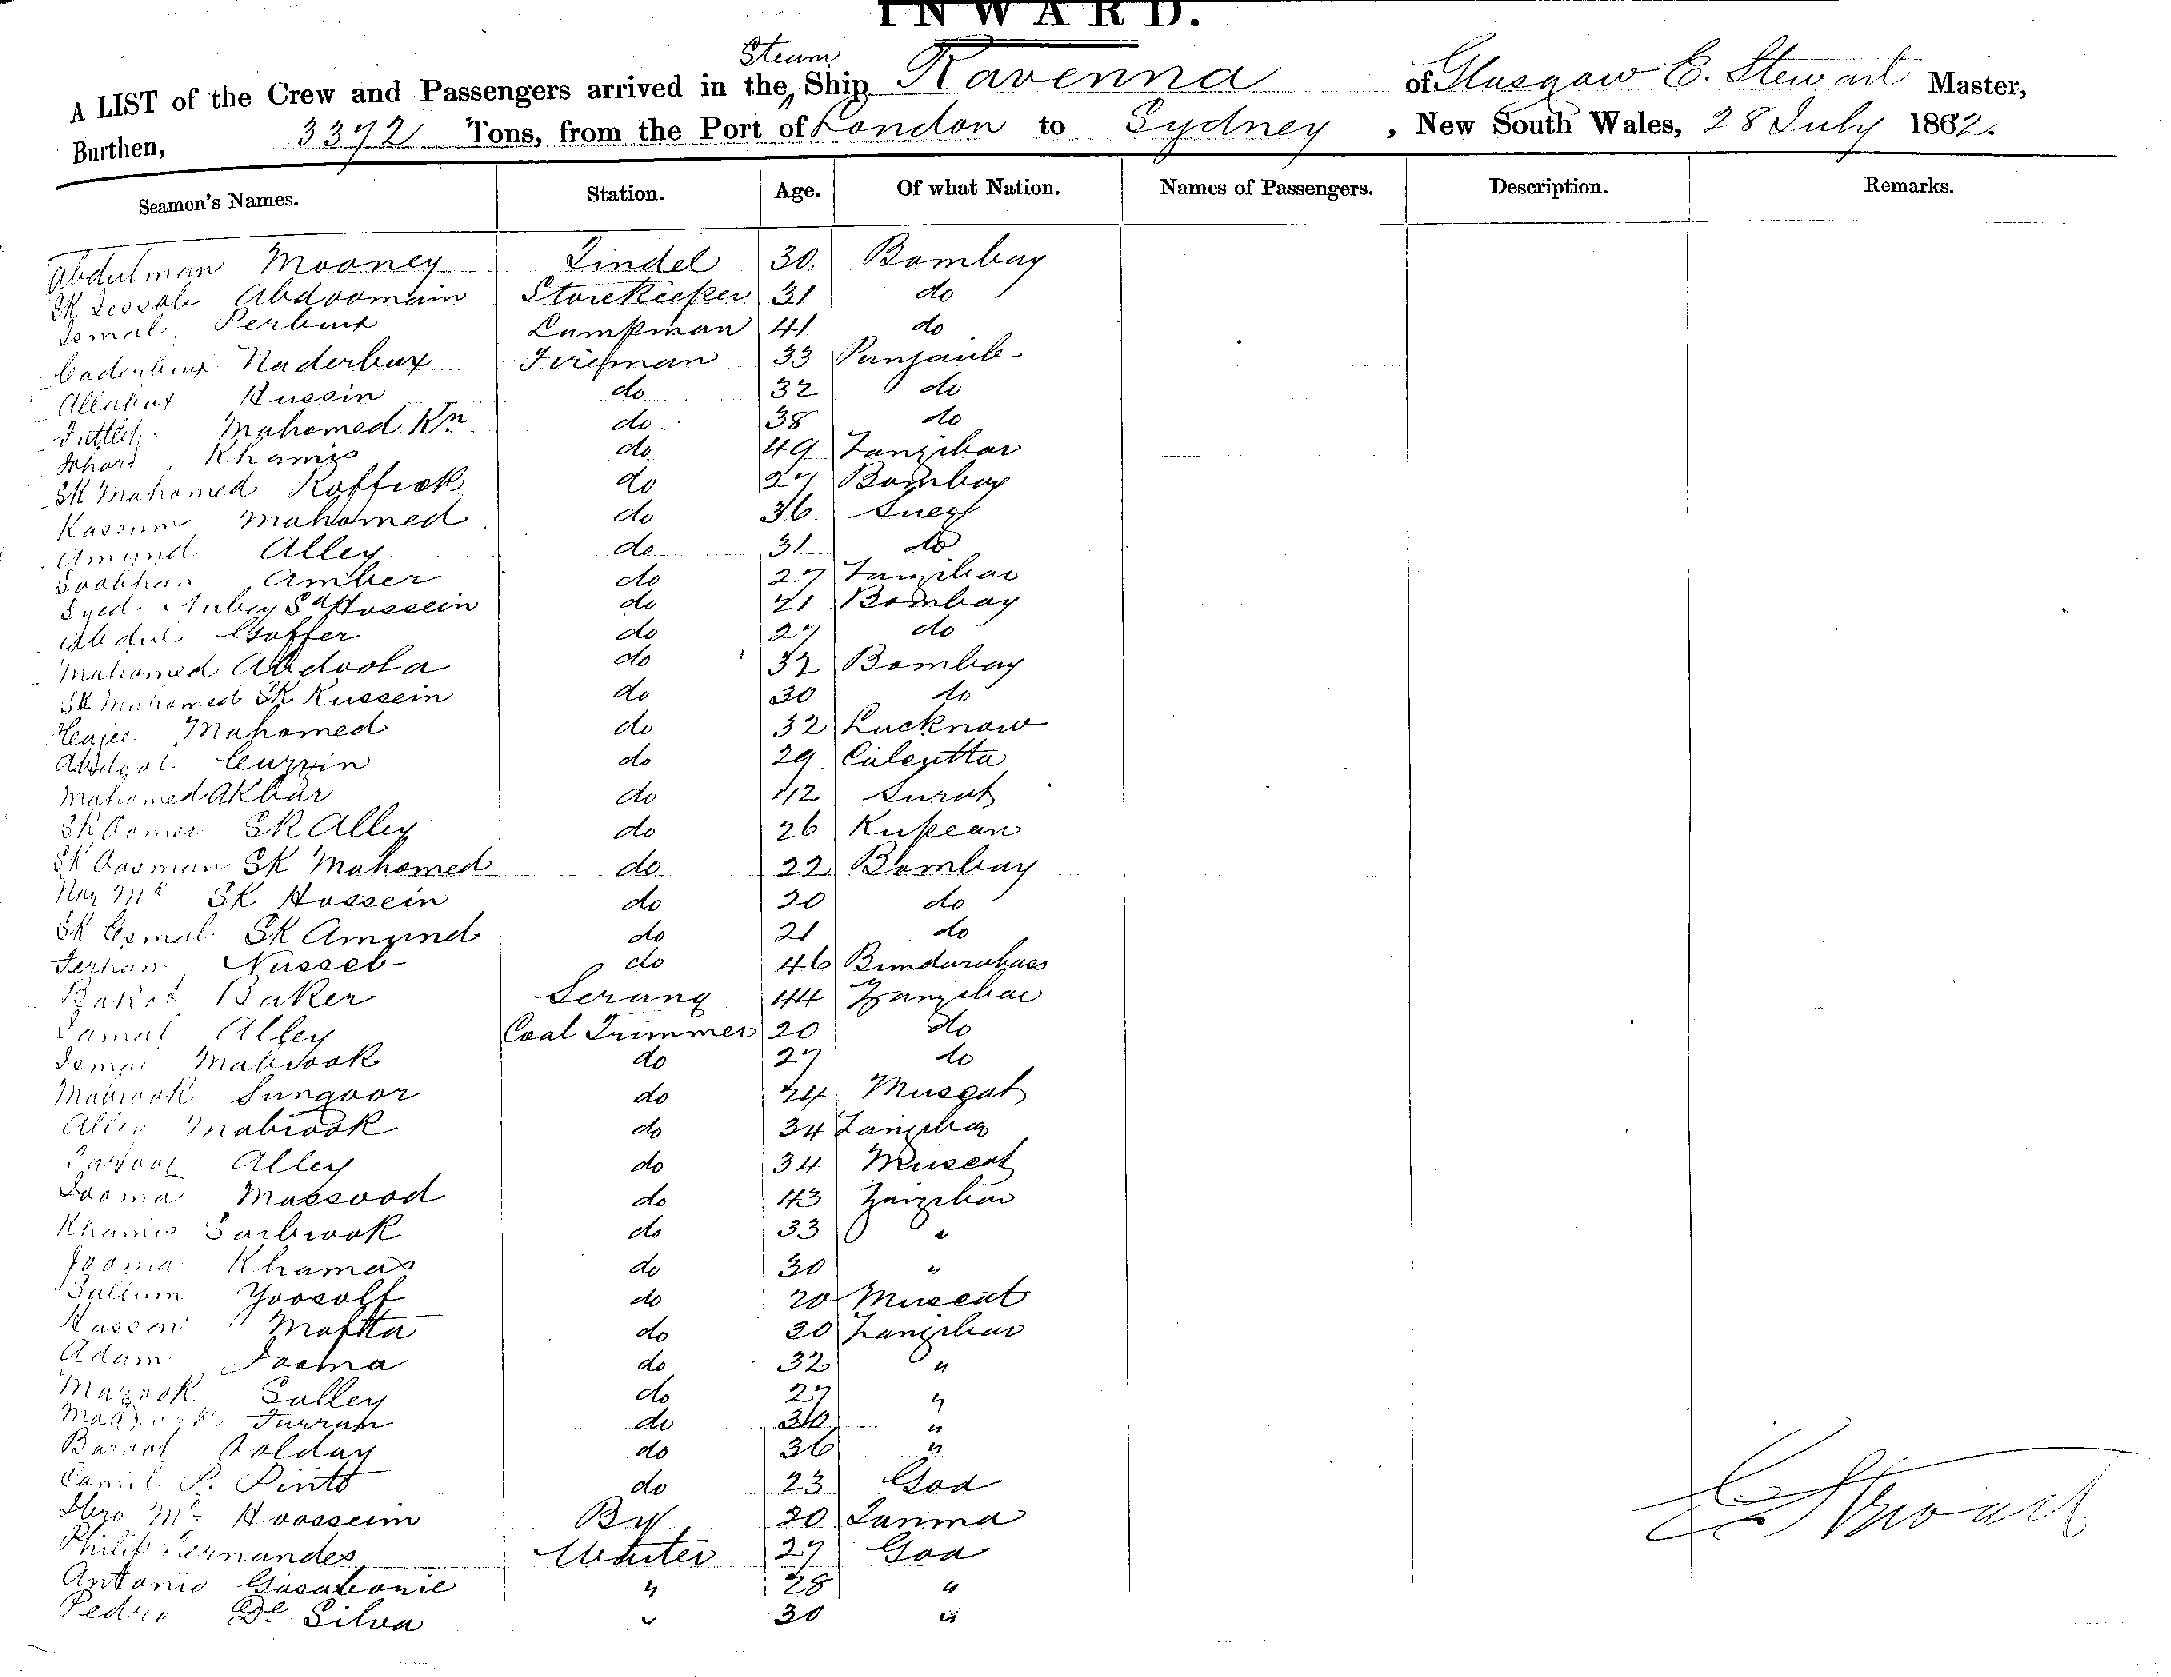 INWARD.
A LIST of the Crew and Passengers arrived in the Steam Ship Ravenna of Glasgow E. Stewart Master,
Burthen, 3372 Tons, from the Port of London to Sydney, New South Wales, 28 July 1882.
Seamen's Names. Station. Age. Of what Nation. Names of Passengers. Description. Remarks.
Abdulman Mooney Tindel 30 Bombay
SK Abdoomain Storekeeper 31 do
Ismal Perbux Lampman 41 do
Naderbux Fireman 33 Punjaub
Allabux Hussin do 32 do
Mahomed Kn do 38 do
Khamis do 49 Zanzibar
SK Mahomed Roffick do 27 Bombay
Kassum Mahomed do 36 Suez
Amynd Alley do 31 do
Amber do 27 Zanzibar
Syed Sd Hossein do 21 Bombay
Abdul Goffer do 27 do
Mahomed Abdoola do 32 Bombay
SK Mahomed SK Kussein do 30 do
Mahomed do 32 Lucknow
do 29 Calcutta
Mahomed Akbar do 42 Surat
SK Oomer SK Alley do 26 Kupean
SK Oosman SK Mahomed do 22 Bombay
SK Hossein do 20 do
SK Esmal SK Amynd do 21 do
Ferhan Nusseb do 46 Bundarabass
Baker Serang 44 Zanzibar
Alley Coal Trimmer 20 do
Mabrook do 27 do
Mabrook Sungoor do 24 Musgat
Alley Mabrook do 34 Zanzibar
Alley do 34 Muscat
Jooma Massood do 43 Zanzibar
Khamis Sarbrook do 33 "
Jooma Khamas do 30 "
Sallum Yoosolf do 20 Muscat
Hassan Moftta do 20 Zanzibar
Adam Jooma do 32 "
Salley do 27 "
Furran do "
do 36 "
P. Pinto do 23 Goa
Md Hoosseim Boy 20
Philip Fernandes Waiter 27 Goa
Antonio " 28 "
Pedro De Silva " 30 "
E Stewart